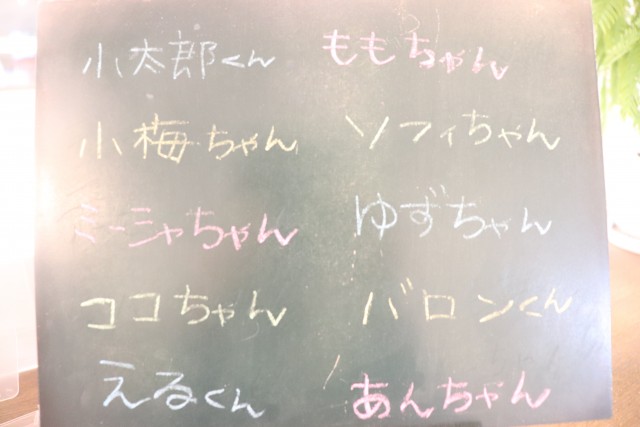 小太郎くん ももちゃん
小梅ちゃん ソフィちゃん
ミーシャちゃん ゆずちゃん
ココちゃん バロンくん
えるくん あんちゃん